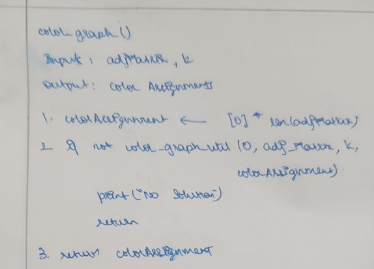 color_graph()
Input: adjMatrix, k
Output: color Assignments
1. colorAssignment ← [0] * len(adjMatrix)
2. If not color_graph_util (0, adj_Matrix, k,
colorAssignment)
print("No Solution")
return
3. return colorAssignment